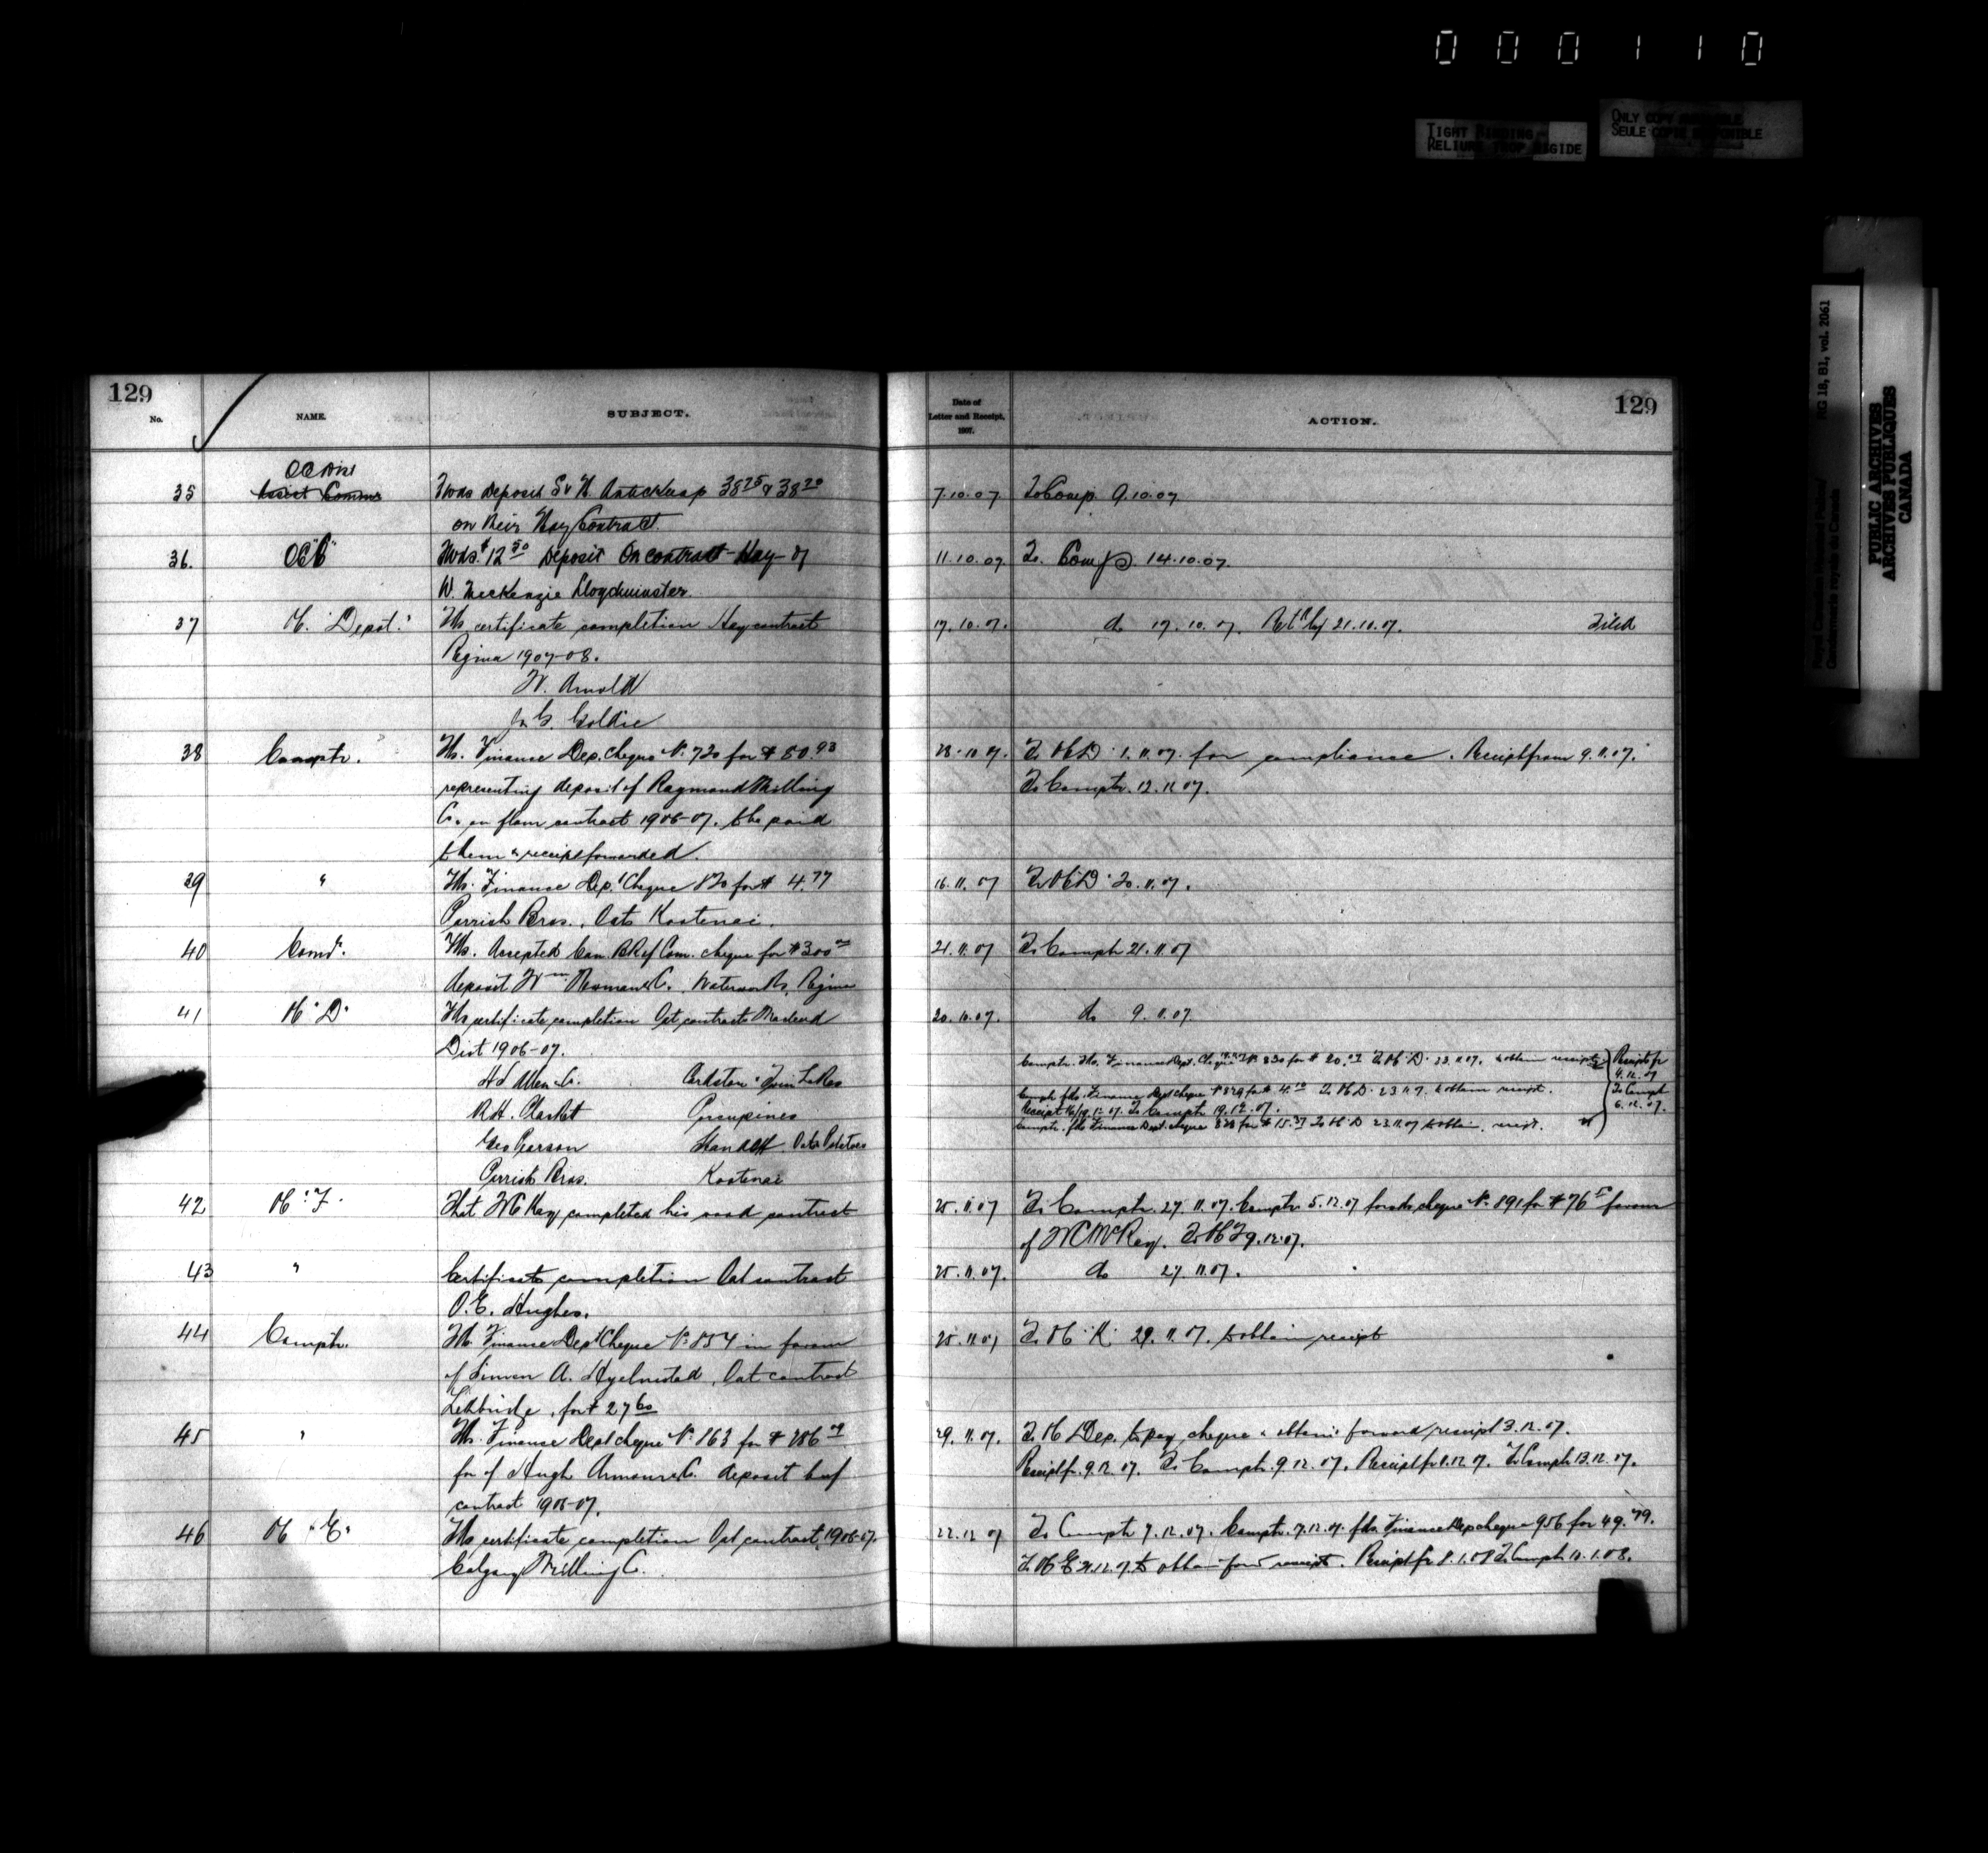 000110
TIGHT BINDING
RELIURE TROP RIGIDE
ONLY COPY AVAILABLE
SEULE COPIE DISPONIBLE
RG 18, B1, vol. 2061
Royal Canadian Mounted Police/
Gendarmerie royale du Canada
PUBLIC ARCHIVES
ARCHIVES PUBLIQUES
CANADA
129
No. NAME. SUBJECT. Date of Letter and Receipt, 1907. ACTION.
129
35 Assist Commr Fwds deposit S & H 38 25 & 38 20 7.10.07 To Comp. 9.10.07
on their Hay Contract.
36. OC "C" Fwds $12 50 Deposit On contract - Hay - of 11.10.07 To. Comp 14.10.07.
W. McKenzie Lloydminster.
37 Depot. Fds certificate completion Hay contract 17.10.07. do 17.10.07. 21.10.07. Filed
Regina 1907-08.
W. Arnold
Goldie
38 Comptr. Fds. Finance Dep. Cheque No. 720 for $80.93 28.10.07. To OC D. 1.11.07. for compliance. Receipt from 9.11.07.
representing deposit of Raymond Milling To Comptr. 12.11.07.
Co. on flour contract 1906-07. to be paid
them & receipt forwarded.
39 " Fds. Finance Dept Cheque 820 for $4.77 16.11.07 To OC D 20.11.07.
Parrish Bros., Oats Kootenai.
40 Comr. Fds. Accepted Can. Bk of Com. cheque for $300 21.11.07 To Comptr 21.11.07
deposit Wm. Newman & Co. Waterworks, Regina
41 OC "D" Fds certificate completion Oat contracts Macleod 20.10.07. do 9.11.07
Dist 1906-07.
H S Allen & Co. Cardston & Twin Lakes Comptr. Fds. Finance Dept. Cheque No. 830 for $20. To OC D. 23.11.07. to obtain receipt. Receipts fr 4.12.07
R.H. Porcupines Comptr fds. Finance Dept cheque No 829 for $4.10 To OC D. 23.11.07. to obtain receipt. To Comptr 6.12.07.
To Comptr 19.12.07.
Geo Pearson Stand Off Oats Potatoes Comptr. fds Finance Dept. cheque 828 for $15.37 To OC D 23.11.07 to obtain receipt.
Parrish Bros. Kootenai
42 OC "F" That W C McKay completed his wood contract 25.11.07 To Comptr. 27.11.07. Comptr 5.12.07 forwds cheque No. 891 for $76 50 favour
of W C McKay. To OC F 9.12.07.
43 " Certificate completion Oat contract 25.11.07. do 27.11.07.
O.E. Hughes.
44 Comptr. Fds. Finance Dept Cheque No. 854 in favour 25.11.07 To OC K. 29.11.07. to obtain receipt
of Simon A. Hjelmstad, Oat contract
Lethbridge, for $27 60
45 " Fds. Finance Dept cheque No. 863 for $286 29.11.07. To OC Dep. to pay cheque & obtain & forward receipt 3.12.07.
fr of Hugh Armour & Co. deposit beef Receipt fr. 9.12.07. To Comptr. 9.12.07. Receipt fr 11.12.07. To Comptr 13.12.07.
contract 1906-07.
46 OC "E" Fds certificate completion Oat contract, 1906-07. 22.12.07 To Comptr 7.12.07. Comptr. 7.12.07. fds. Finance Dep cheque 956 for 49.79.
Calgary Milling Co. To OC E to obtain & forwd receipt. Receipt fr 8.1.08 To Comptr 10.1.08.